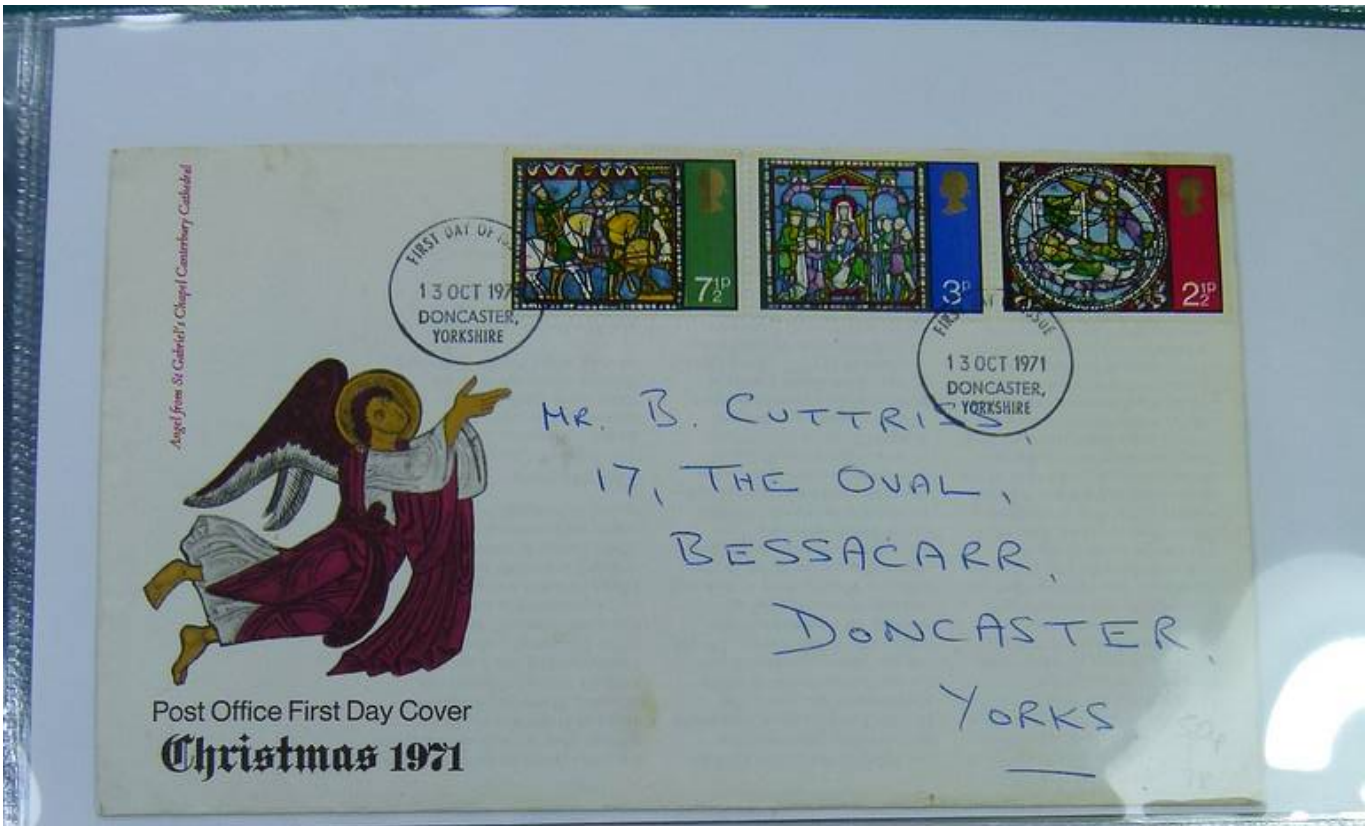 Angel from St Gabriel's Chapel Canterbury Cathedral
7½P
3P
2½P
FIRST DAY OF
13 OCT 197
DONCASTER,
YORKSHIRE
FIRST ISSUE
13 OCT 1971
DONCASTER,
YORKSHIRE
MR. B. CUTTRISS,
17, THE OVAL,
BESSACARR,
DONCASTER,
YORKS
Post Office First Day Cover
Christmas 1971
50p